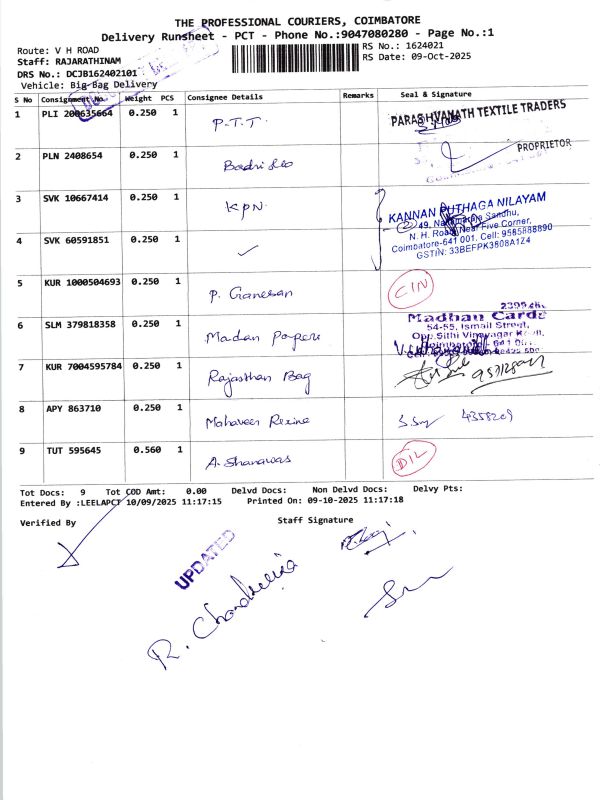 THE PROFESSIONAL COURIERS, COIMBATORE
Delivery Runsheet - PCT - Phone No.:9047080280 - Page No.:1
Route: V H ROAD
RS No.: 1624021
Staff: RAJARATHINAM
RS Date: 09-Oct-2025
DRS No.: DCJB162402101
Vehicle: Big-Bag Delivery
S No Consignment No. Weight PCS Consignee Details Remarks Seal & Signature
1 PLI 200635664 0.250 1 P.T.T. PARASHVANATH TEXTILE TRADERS
PROPRIETOR
2 PLN 2408654 0.250 1
3 SVK 10667414 0.250 1 KPN. KANNAN PUTHAGA NILAYAM
49, Sandhu,
N. H. Road, Near Five Corner,
4 SVK 60591851 0.250 1 ✓ Coimbatore-641 001, Cell: 9585888890
GSTIN: 33BEFPK3808A1Z4
5 KUR 1000504693 0.250 1 P. Ganesan CIN
6 SLM 379818358 0.250 1 Madan Papers Madhan Cards
54-55, Ismail Street,
Opp. Sithi Vinayagar
7 KUR 7004595784 0.250 1 Rajasthan Bag
8 APY 863710 0.250 1 Mahaveer Rexine
9 TUT 595645 0.560 1 A. Shanawas DIL
Tot Docs: 9 Tot COD Amt: 0.00 Delvd Docs: Non Delvd Docs: Delvy Pts:
Entered By :LEELAPCT 10/09/2025 11:17:15 Printed On: 09-10-2025 11:17:18
Verified By Staff Signature
UPDATED